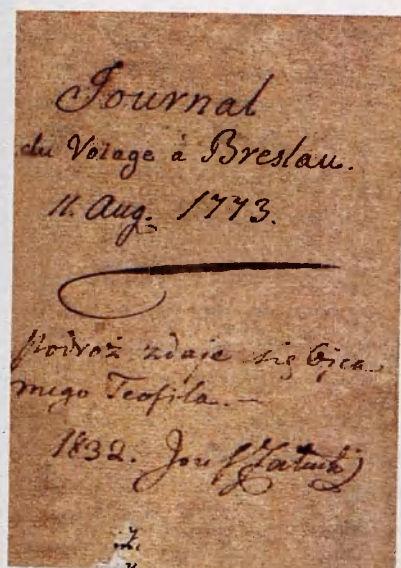 Journal
du Voiage à Breslau.
11. Aug. 1773.
Podróż zdaje się Ojca
mego Teofila. —
1832. Józef Załuski